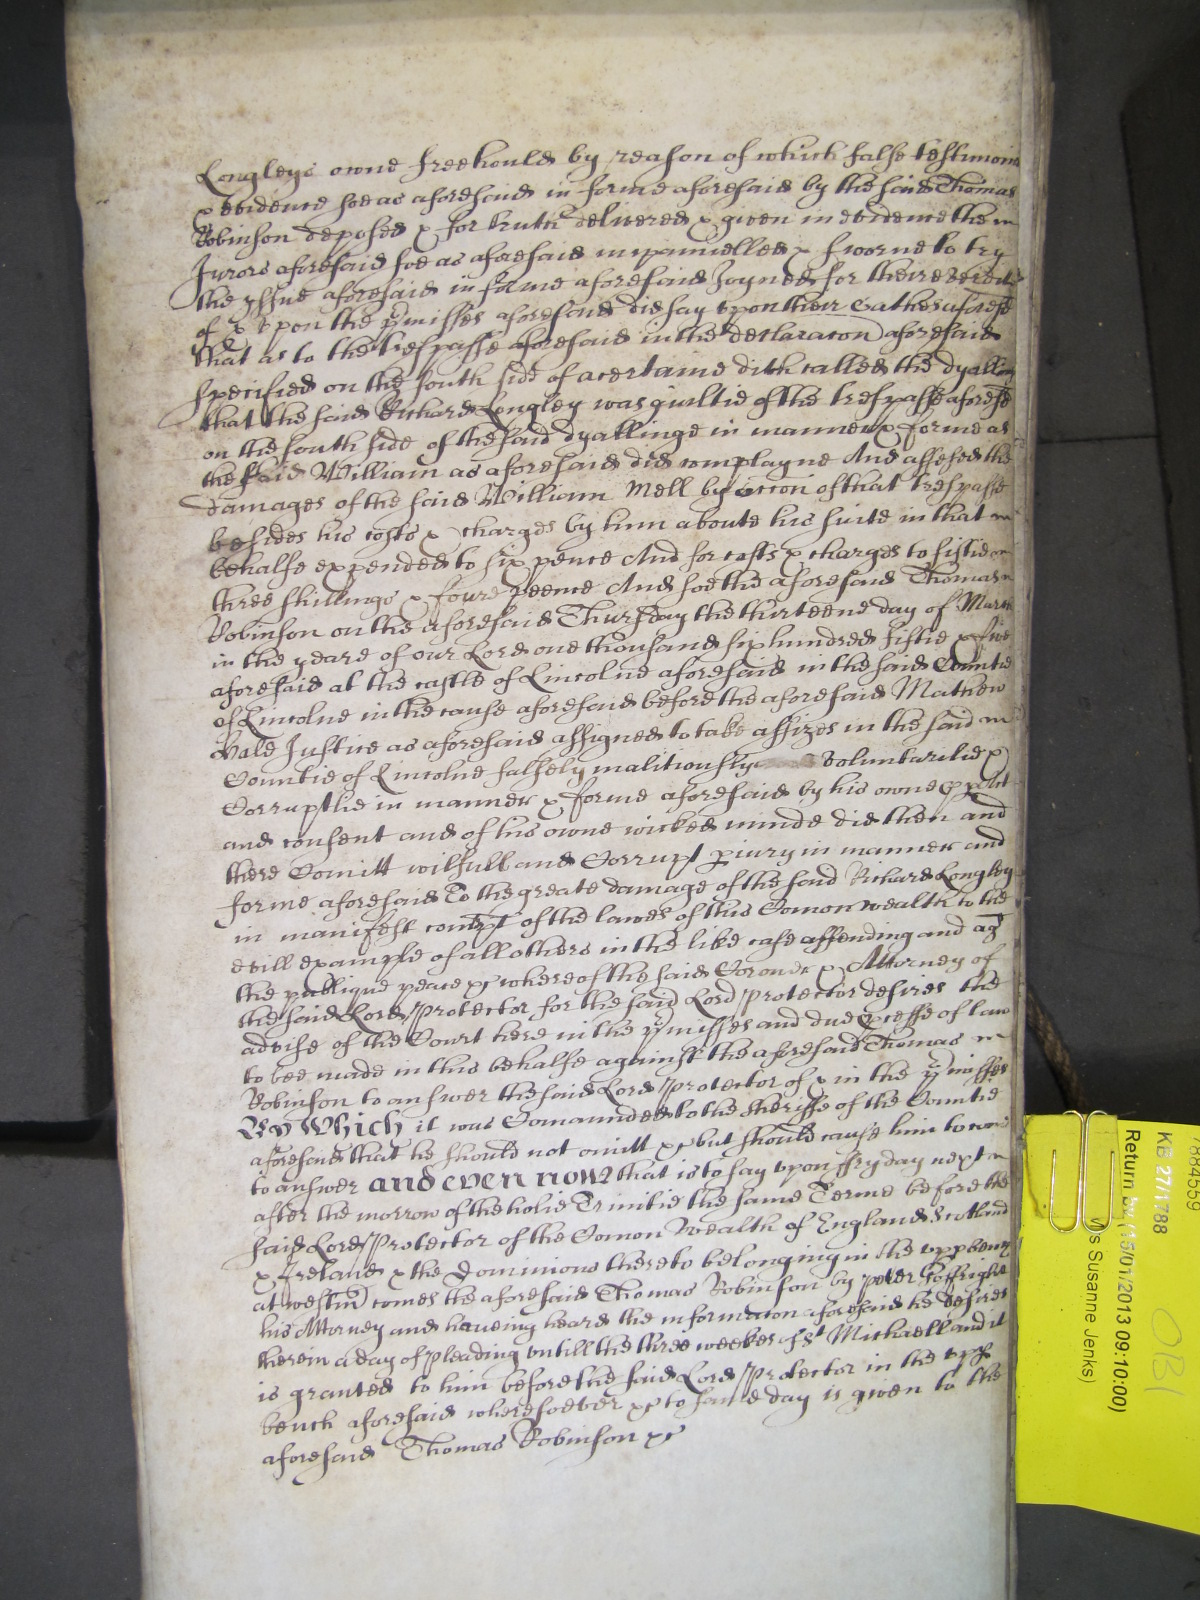 Longleys owne freehould by reason of which false testimonie
& evidence soe as aforesaid in forme aforesaid by the said Thomas
Robinson deposed & for truth delivered & given in evidence the
Jurors aforesaid soe as aforesaid impannelled & sworne to try
the yssue aforesaid in forme aforesaid Joyned for theire verdict
of & upon the p'misses aforesaid did say upon their oathes aforesd
that as to the trespasse aforesaid in the declaracon aforesaid
specified on the south side of a certaine ditch called the dyallinge
that the said Richard Longley was guiltie of the trespasse aforesd
on the south side of the said dyallinge in manner & forme as
the said William as aforesaid did complayne And assessed the
damages of the said William Mell by occon of that trespasse
besides his costs & charges by him aboute his suite in that
behalfe expended to six pence And for costs & charges to fiftie
three shillings & foure peence And soe the aforesaid Thomas
Robinson on the aforesaid Thursday the thirteene day of March
in the yeare of our Lord one thousand six hundred fiftie & five
aforesaid at the castle of Lincolne aforesaid in the said Countie
of Lincolne in the cause aforesaid before the aforesaid Mathew
Hale Justice as aforesaid assigned to take assizes in the said
Countie of Lincolne falsely malitiously voluntarilie &
Corruptlie in manner & forme aforesaid by his owne p'per act
and consent and of his owne wicked minde did then and
there Comitt wilfull and Corrupt p'iury in manner and
forme aforesaid To the greate damage of the said Richard Longley
in manifest contempt of the lawes of this Comonwealth to the
evill example of all others in the like case offending and ag
the publique peace &c whereof the said Coroner & Attorney of
the said Lord Protector for the said Lord Protector desires the
advise of the Court here in the p'misses and due p'cesse of law
to bee made in this behalfe against the aforesaid Thomas
Robinson to answer the said Lord Protector of & in the p'misses
By Which it was Comaunded to the sheriffe of the Countie
aforesaid that he should not omitt &c but should cause him to come
to answer and even now that is to say upon fryday next
after the morrow of the holie Trinitie the same Terme before the
said Lord Protector of the Comon Wealth of England Scotland
& Ireland & the Dominions thereto belonging in the upp bench
at westm comes the aforesaid Thomas Robinson by peter
his Attorney and haveing heard the informacon aforesaid he desires
therein a day of pleading untill the three weekes of St Michaell and it
is granted to him before the said Lord Protector in the upp
bench aforesaid wheresoever &c to same day is given to the
aforesaid Thomas Robinson &c
7884559
KB 27/1788
Return by (15/01/2013 09:10:00)
Ms Susanne Jenks)
OB1